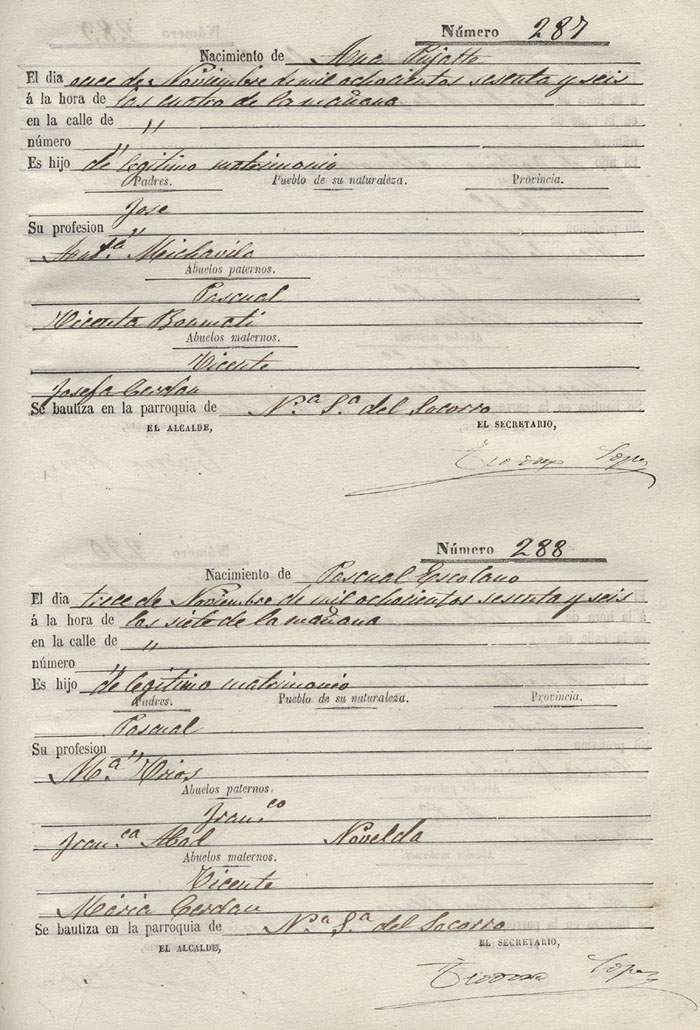 Número 287
Nacimiento de Ana Pujalte
El dia once de Noviembre de mil ochocientos sesenta y seis
á la hora de las cuatro de la mañana
en la calle de "
número "
Es hijo de legitimo matrimonio
Padres. Pueblo de su naturaleza. Provincia.
Jose
Su profesion "
Ant.ª Michavila
Abuelos paternos.
Pascual
Vicenta Bonmati
Abuelos maternos.
Vicente
Josefa Cerdan
Se bautiza en la parroquia de N.ª S.ª del Socorro
EL ALCALDE, EL SECRETARIO,
Lopez
Número 288
Nacimiento de Pascual Escolano
El dia trece de Noviembre de mil ochocientos sesenta y seis
á la hora de las siete de la mañana
en la calle de "
número "
Es hijo de legitimo matrimonio
Padres. Pueblo de su naturaleza. Provincia.
Pascual
Su profesion "
M.ª
Abuelos paternos.
Fran.co
Fran.ca Abad Novelda
Abuelos maternos.
Vicente
Maria Cerdan
Se bautiza en la parroquia de N.ª S.ª del Socorro
EL ALCALDE, EL SECRETARIO,
Lopez